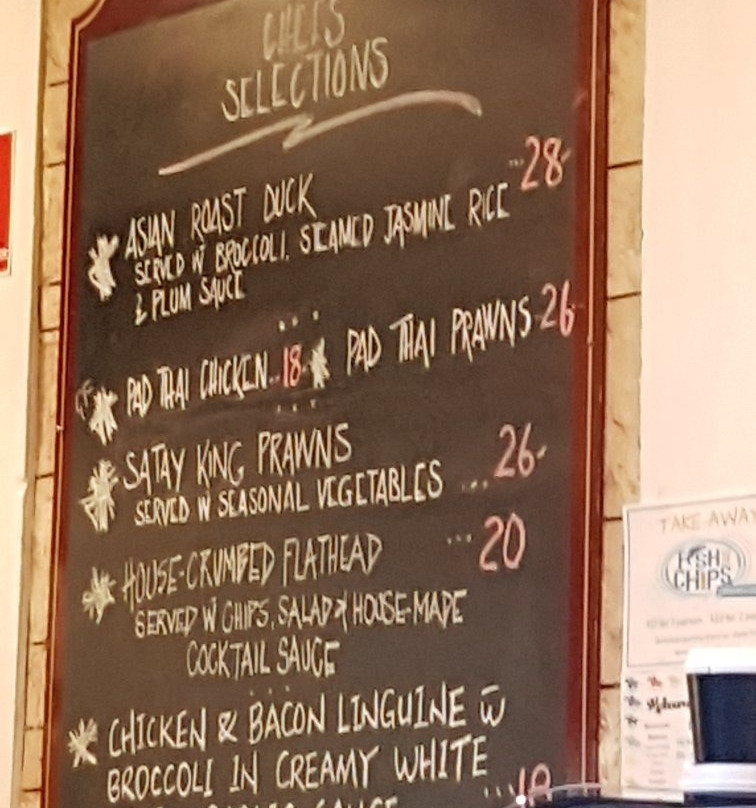 CHEFS
SELECTIONS
ASIAN ROAST DUCK ...28-
SERVED W BROCCOLI, STEAMED JASMINE RICE
& PLUM SAUCE
PAD THAI CHICKEN..18- PAD THAI PRAWNS-26-
SATAY KING PRAWNS
SERVED W SEASONAL VEGETABLES ...26-
HOUSE-CRUMBED FLATHEAD ...20
SERVED W CHIPS, SALAD & HOUSE-MADE
COCKTAIL SAUCE
CHICKEN & BACON LINGUINE W
BROCCOLI IN CREAMY WHITE
SAUCE
TAKE AWAY
FISH
CHIPS
Welcome